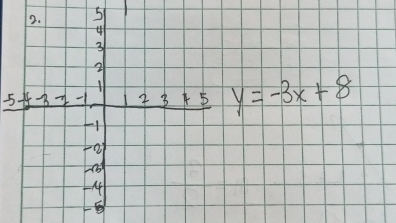 2.
5
4
3
2
1
-5 -4 -3 -2 -1 1 2 3 4 5 y = -3x + 8
-1
-2
-3
-4
-5